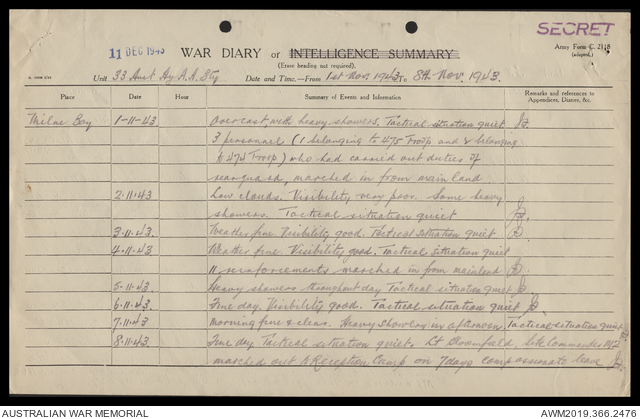 SECRET
11 DEC 1943
WAR DIARY or INTELLIGENCE SUMMARY
Army Form C. 2118
(adapted.)
(Erase heading not required).
Unit 33 Aust Hy A.A. Bty Date and Time.—From 1st Nov. 1943 To 8th Nov. 1943.
Place Date Hour Summary of Events and Information Remarks and references to
Appendices, Diaries, &c.
Milne Bay 1-11-43 Overcast with heavy showers. Tactical situation quiet
3 personnel (1 belonging to 475 Troop and 2 belonging
to 474 Troop) who had carried out duties of
rearguard, marched in from mainland
2.11.43 Low clouds. Visibility very poor. Some heavy
showers. Tactical situation quiet
3.11.43 Weather fine. Visibility good. Tactical situation quiet
4.11.43 Weather fine. Visibility good. Tactical situation quiet
11 reinforcements marched in from mainland
5.11.43 Heavy showers throughout day Tactical situation quiet
6.11.43 Fine day. Visibility good. Tactical situation quiet
7.11.43 Morning fine & clear. Heavy showers in afternoon. Tactical situation quiet
8.11.43 Fine day. Tactical situation quiet. Lt Bloomfield, Site Commander
marched out to Reception Camp on 7 days compassionate leave
AUSTRALIAN WAR MEMORIAL
AWM2019.366.2476